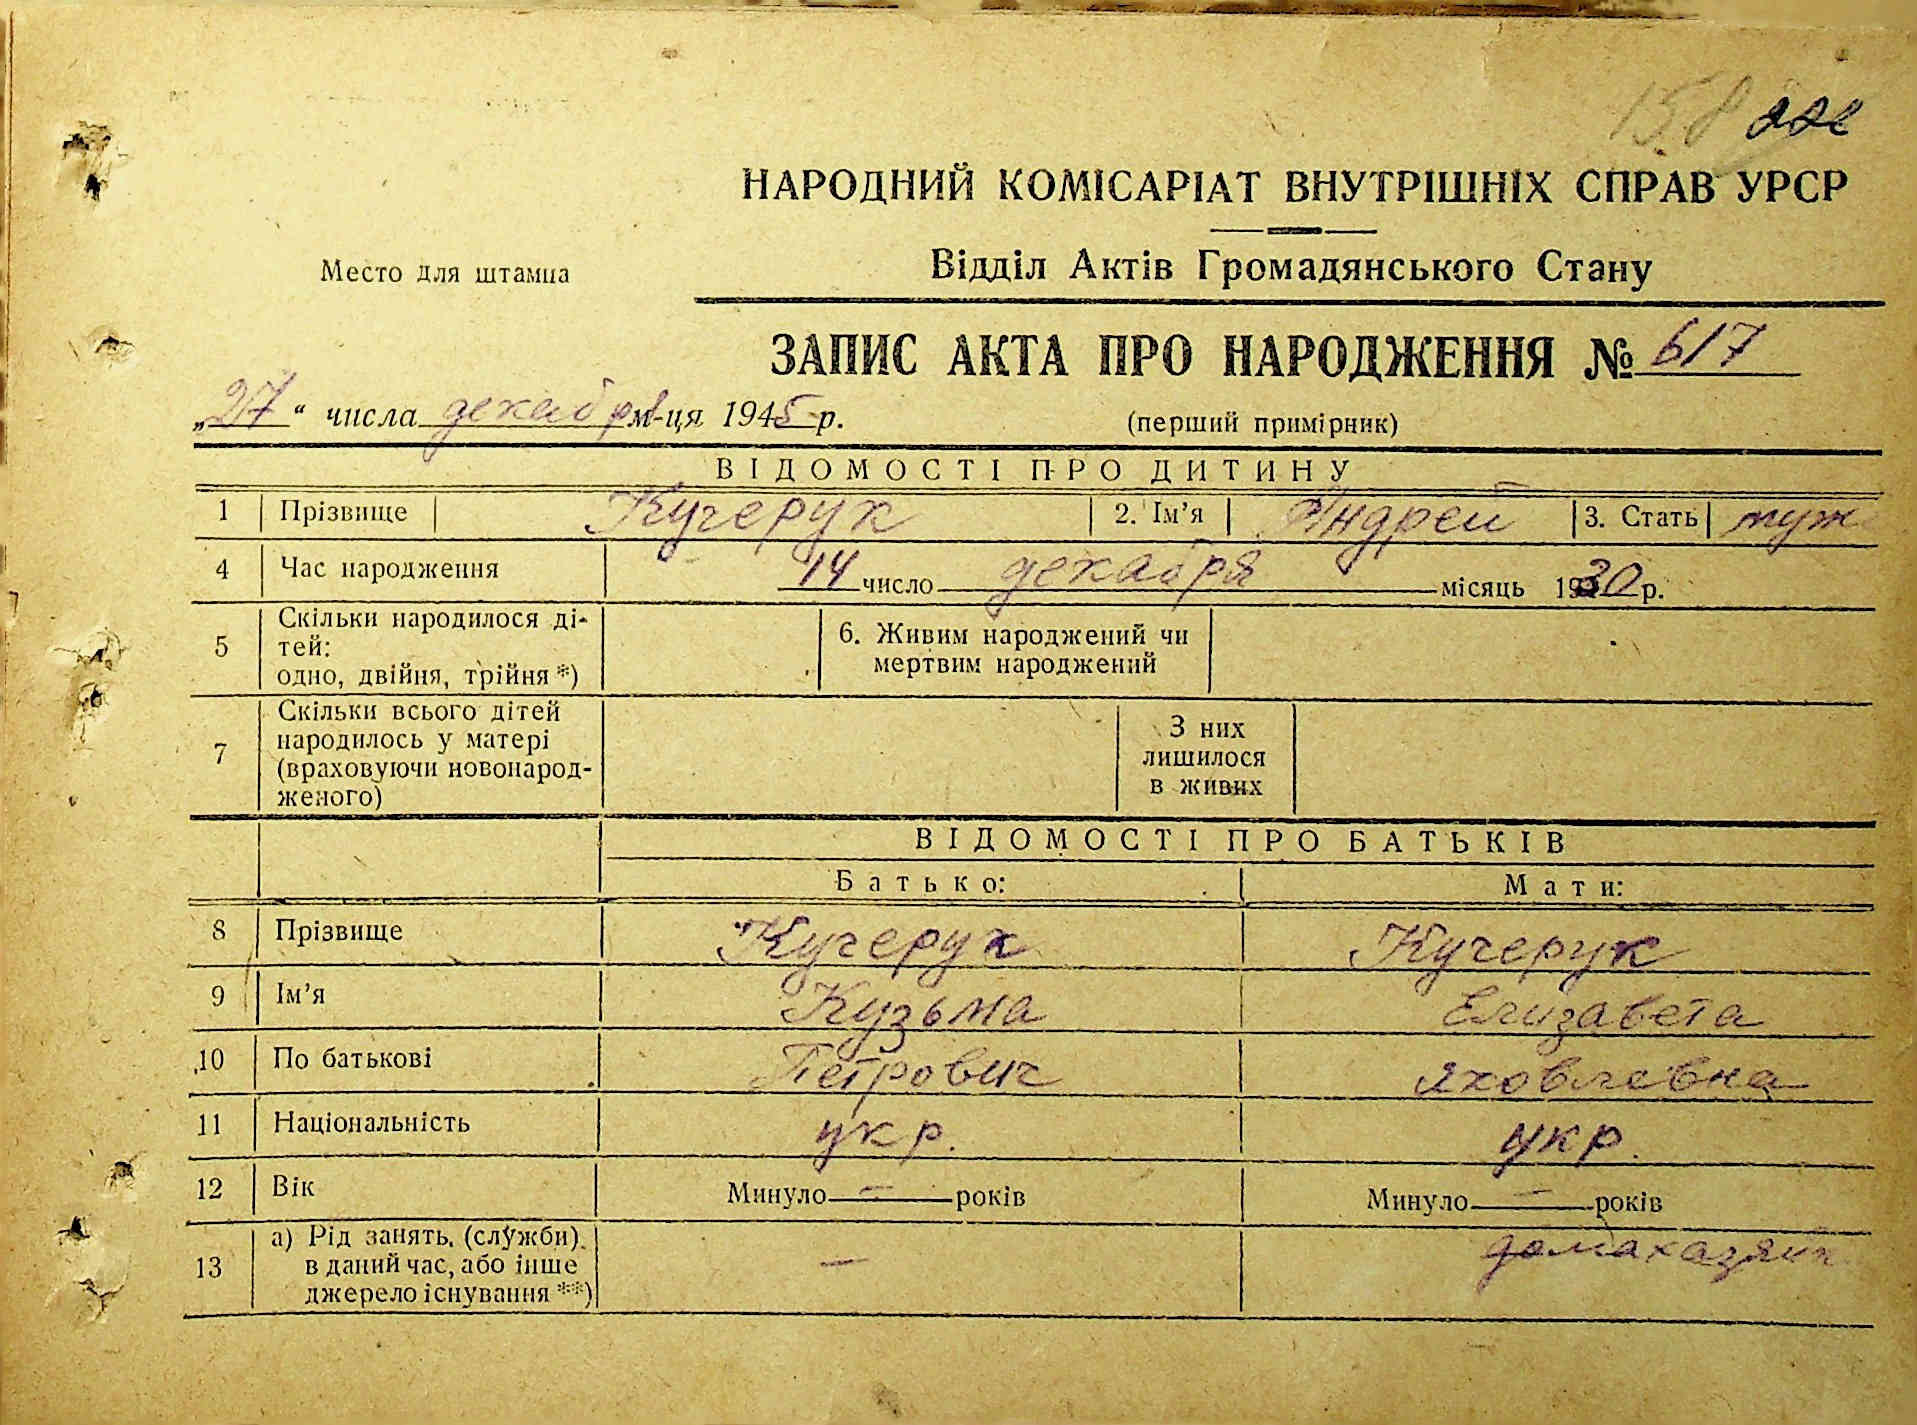 158 221
НАРОДНИЙ КОМІСАРІАТ ВНУТРІШНІХ СПРАВ УРСР
Место для штампа
Відділ Актів Громадянського Стану
ЗАПИС АКТА ПРО НАРОДЖЕННЯ № 617
„27“ числа декабря м-ця 1945 р. (перший примірник)
ВІДОМОСТІ ПРО ДИТИНУ
1 Прізвище Кучерук 2. Ім’я Андрей 3. Стать муж
4 Час народження 14 число декабря місяць 1930 р.
5 Скільки народилося ді-
тей:
одно, двійня, трійня *)
6. Живим народжений чи
мертвим народжений
7 Скільки всього дітей
народилось у матері
(враховуючи новонарод-
женого)
З них
лишилося
в живих
ВІДОМОСТІ ПРО БАТЬКІВ
Батько: Мати:
8 Прізвище Кучерук Кучерук
9 Ім’я Кузьма Елизавета
10 По батькові Петрович Яковлевна
11 Національність укр. укр.
12 Вік Минуло — років Минуло — років
13 а) Рід занять, (служби)
в даний час, або інше
джерело існування **)
— домахазяйк